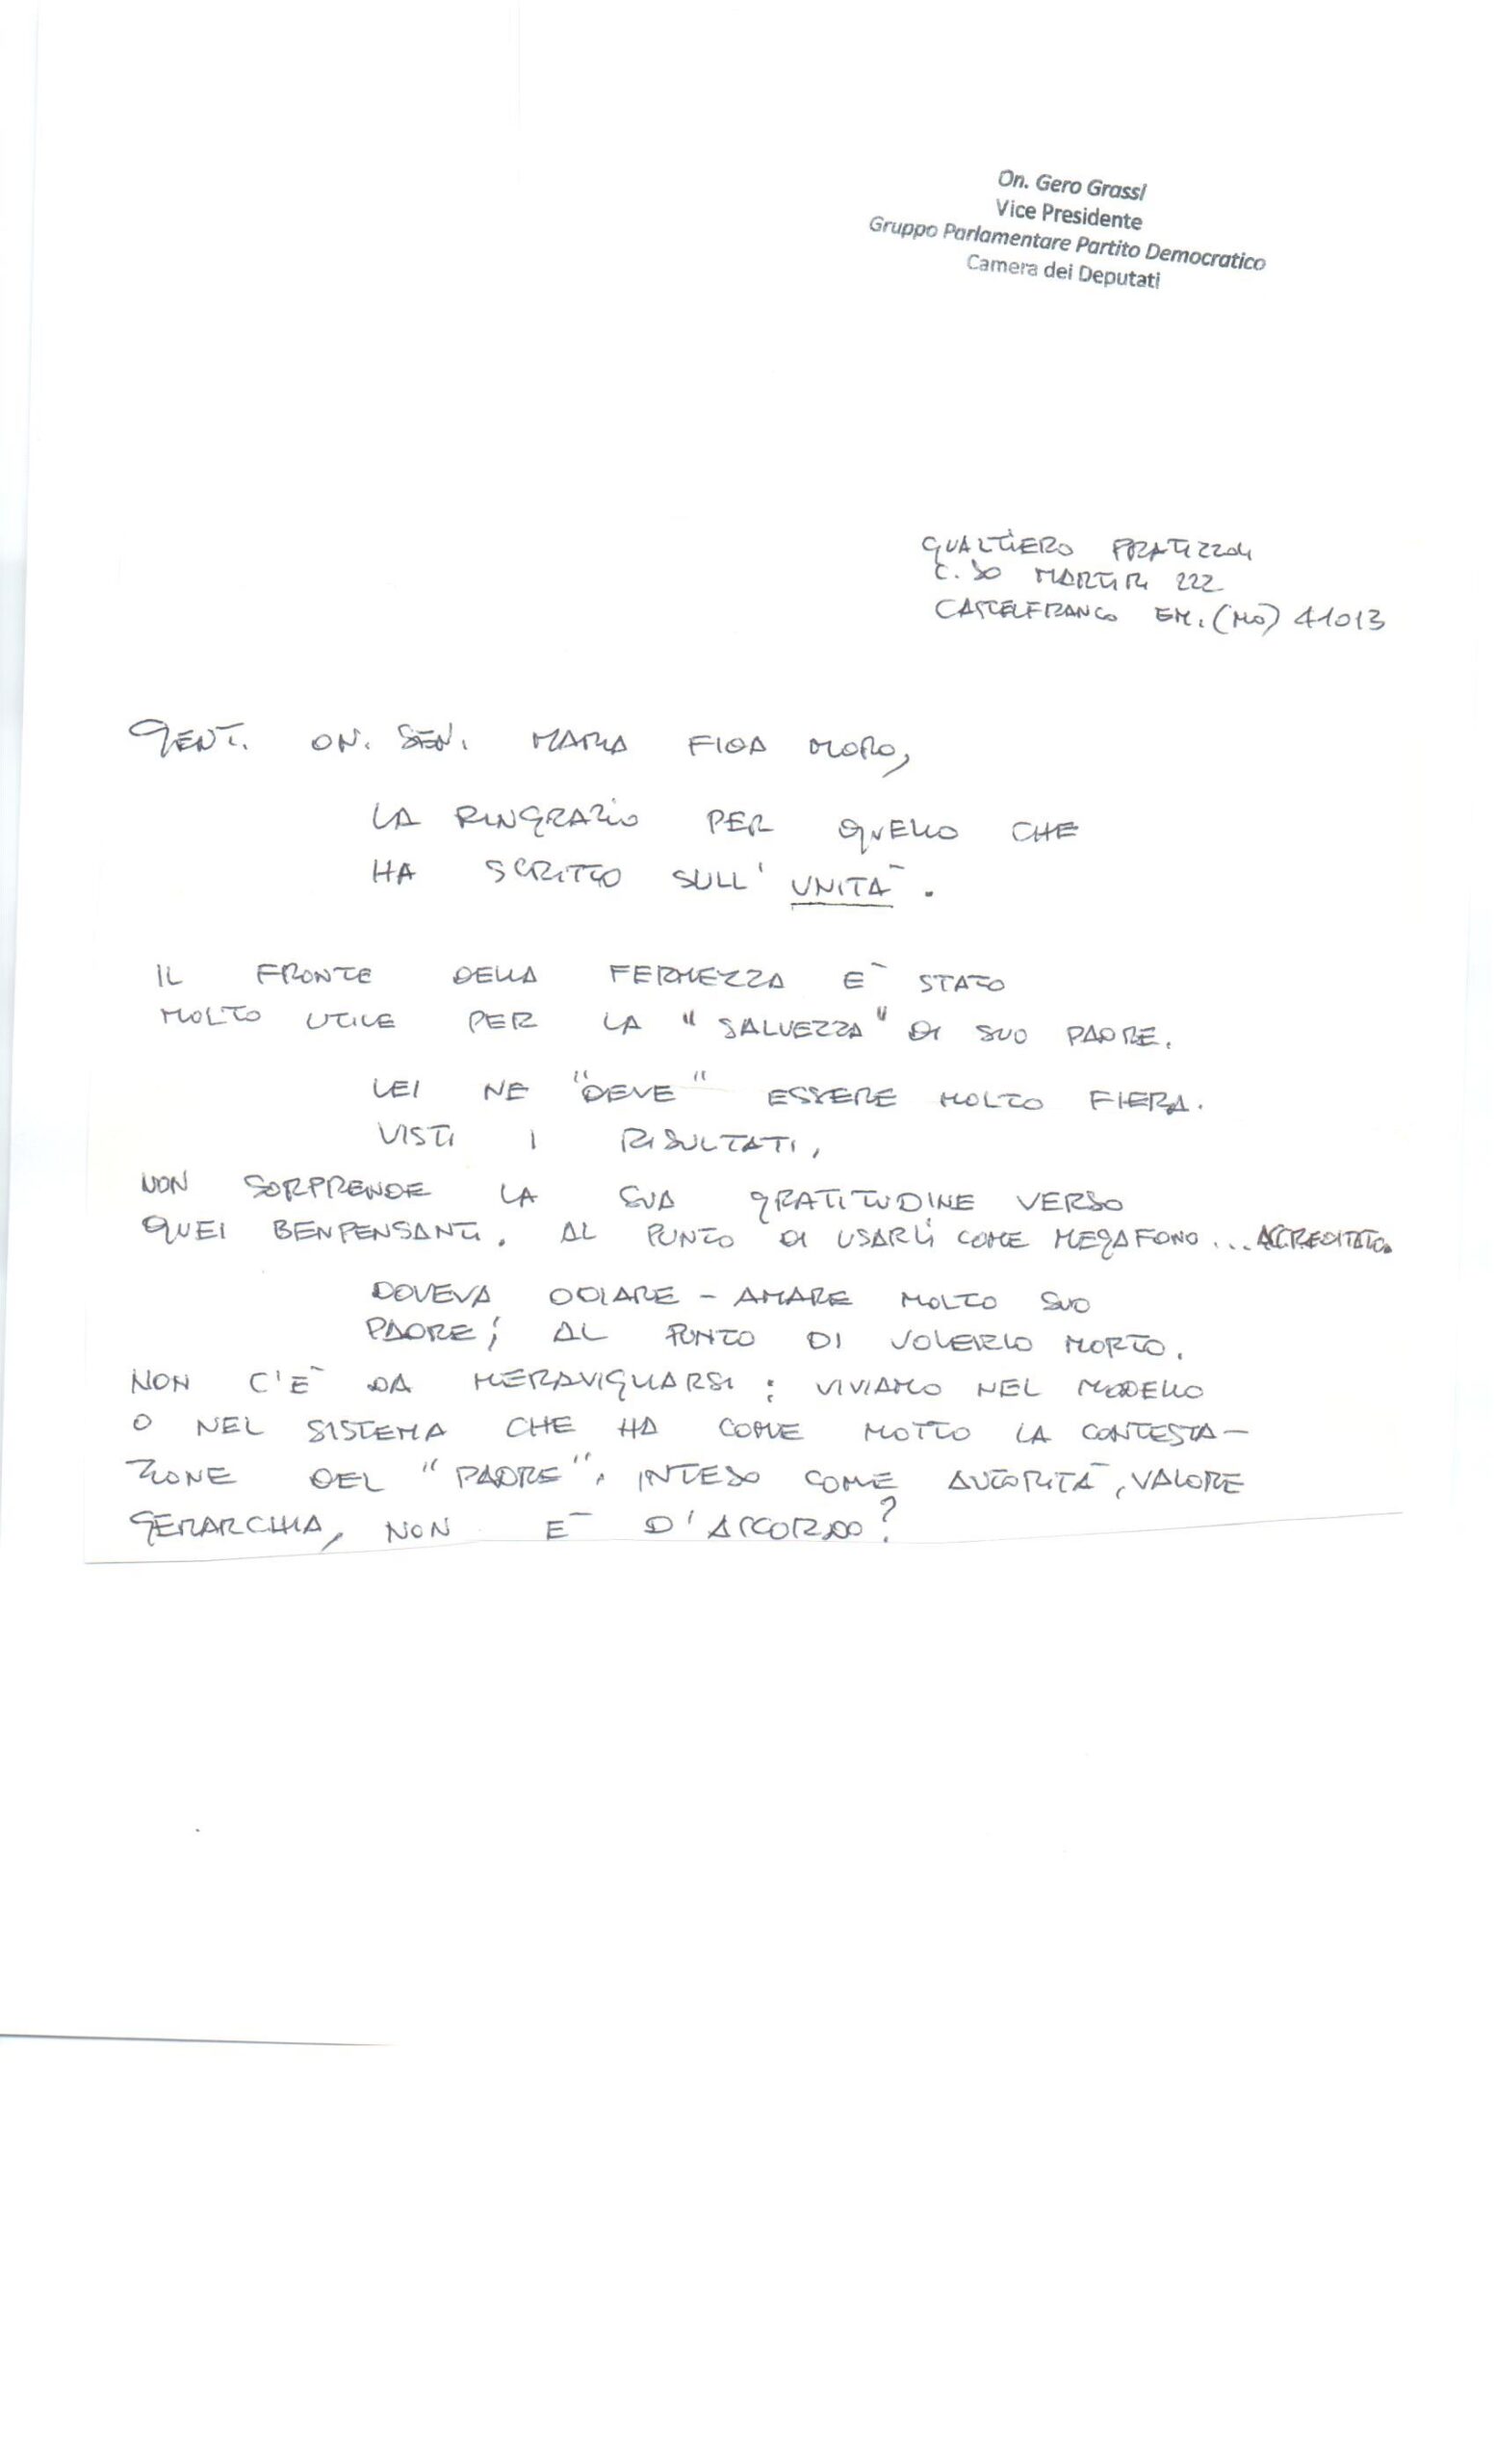 On. Gero Grassi
Vice Presidente
Gruppo Parlamentare Partito Democratico
Camera dei Deputati
GUALTIERO PRATIZZOLI
C.SO MARTIRI 222
CASTELFRANCO EM. (MO) 41013
GENT. ON. SEN. MARIA FIDA MORO,
LA RINGRAZIO PER QUELLO CHE
HA SCRITTO SULL' UNITÀ.
IL FRONTE DELLA FERMEZZA È STATO
MOLTO UTILE PER LA "SALVEZZA" DI SUO PADRE.
LEI NE "DEVE" ESSERE MOLTO FIERA.
VISTI I RISULTATI,
NON SORPRENDE LA SUA GRATITUDINE VERSO
QUEI BENPENSANTI. AL PUNTO DI USARLI COME MEGAFONO... ACCREDITATO.
DOVEVA ODIARE - AMARE MOLTO SUO
PADRE; AL PUNTO DI VOLERLO MORTO.
NON C'È DA MERAVIGLIARSI: VIVIAMO NEL MODELLO
O NEL SISTEMA CHE HA COME MOTTO LA CONTESTA-
ZIONE DEL "PADRE", INTESO COME AUTORITÀ, VALORE
GERARCHIA, NON È D'ACCORDO?